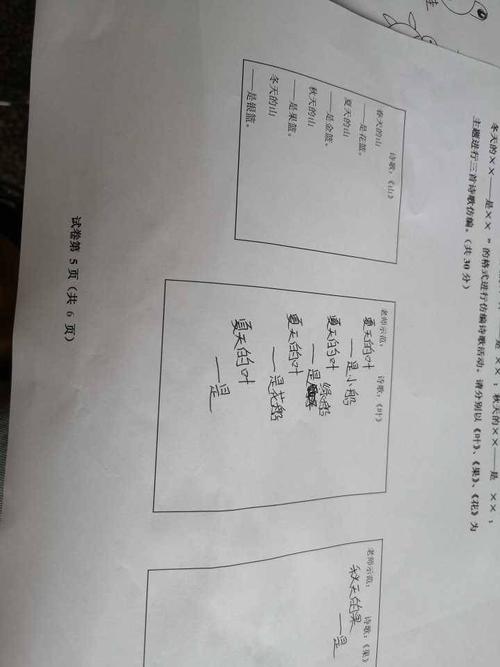 是××；秋天的××——是××；
冬天的××——是××”的格式进行仿编诗歌活动。请分别以《叶》、《果》、《花》为
主题进行三首诗歌仿编。（共 30 分）
诗歌：《山》
春天的山
——是花篮。
夏天的山
——是金篮。
秋天的山
——是果篮。
冬天的山
——是银篮。
老师示范： 诗歌：《叶》
夏天的叶
——是小船
夏天的叶
——是绿船
夏天的叶
——是花船
夏天的叶
——是
老师示范： 诗歌：《果》
秋天的果
——是
试卷第 5 页（共 6 页）